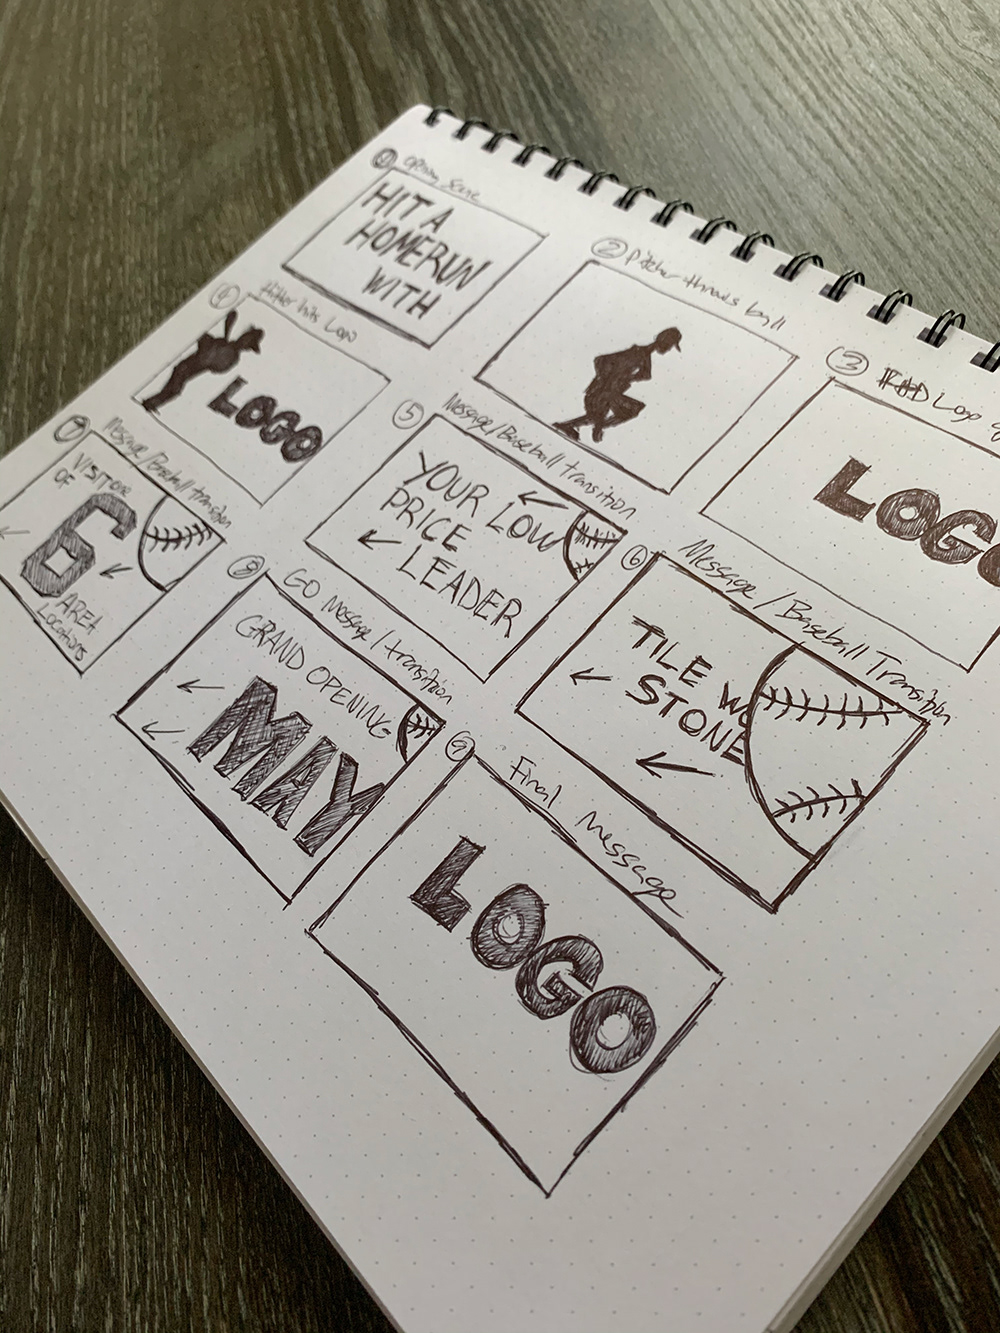 ① Opening Scene
HIT A
HOMERUN
WITH
② Pitcher throws ball
③ Logo
LOGO
④ Hitter hits Logo
LOGO
⑤ Message/Baseball transition
YOUR LOW
PRICE
LEADER
⑥ Message/Baseball Transition
TILE
STONE
⑦ Message/Baseball transition
VISIT ONE
OF
6
AREA
Locations
⑧ GO Message/transition
GRAND OPENING
MAY
⑨ Final Message
LOGO